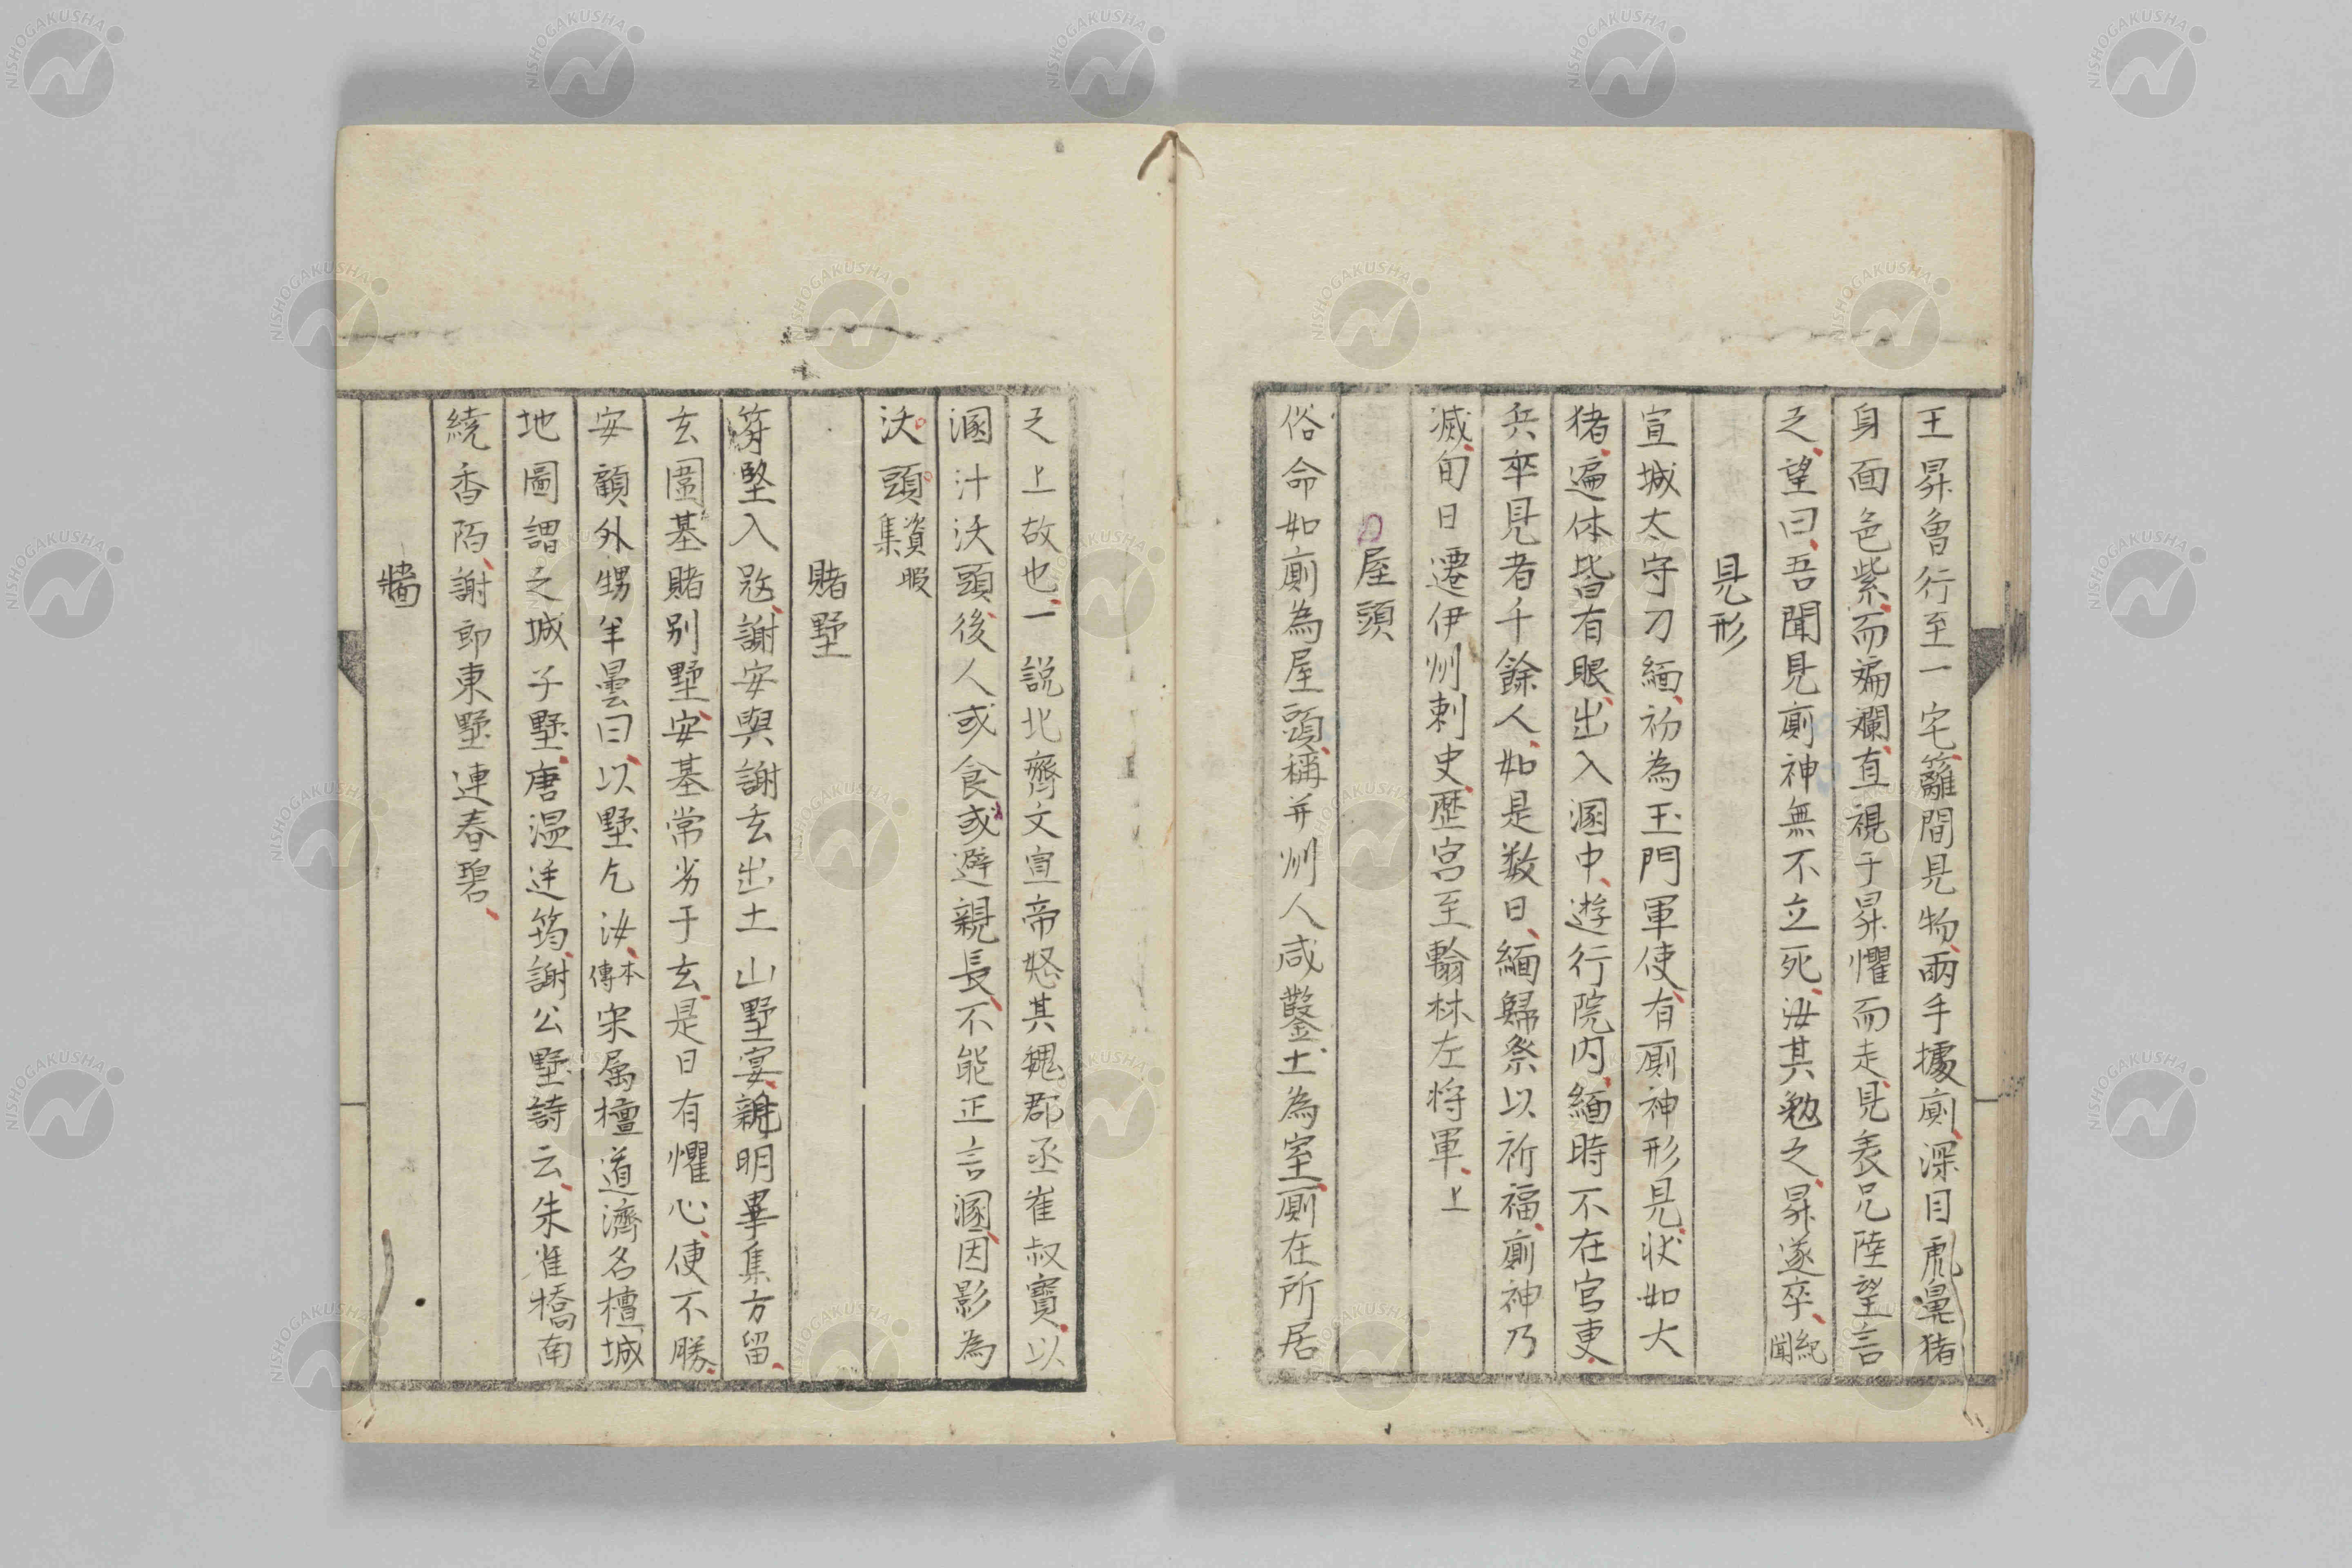 王昇魯行至一宅籬間見物両手據廁深目虎鼻猪
身面色紫而斒斕直視于昇懼而走見表兄陸望言
之望曰吾聞見廁神無不立死汝其勉之昇遂卒紀聞
見形
宣城太守刁緬初為玉門軍使有廁神形見状如大
猪遍体皆有眼出入溷中遊行院内緬時不在官吏
兵卒見者千餘人如是数日緬歸祭以祈福廁神乃
滅旬日遷伊州刺史歴宮至翰林左将軍上
屋頭
俗命如廁為屋頭稱并州人咸鑿土為室廁在所居
之上故也一説北齊文宣帝怒其魏郡丞崔叔寳以
溷汁沃頭後人或食或避親長不能正言溷因影為
沃頭資暇集
賭墅
苻堅入寇謝安與謝玄出土山墅宴親明畢集方留
玄圍基賭別墅安基常劣于玄是日有懼心便不勝
安顧外甥羊曇曰以墅乞汝本傳宋属檀道濟名檀城
地圖謂之城子墅唐温廷筠謝公墅詩云朱雀橋南
繞香陌謝郎東墅連春碧
牆